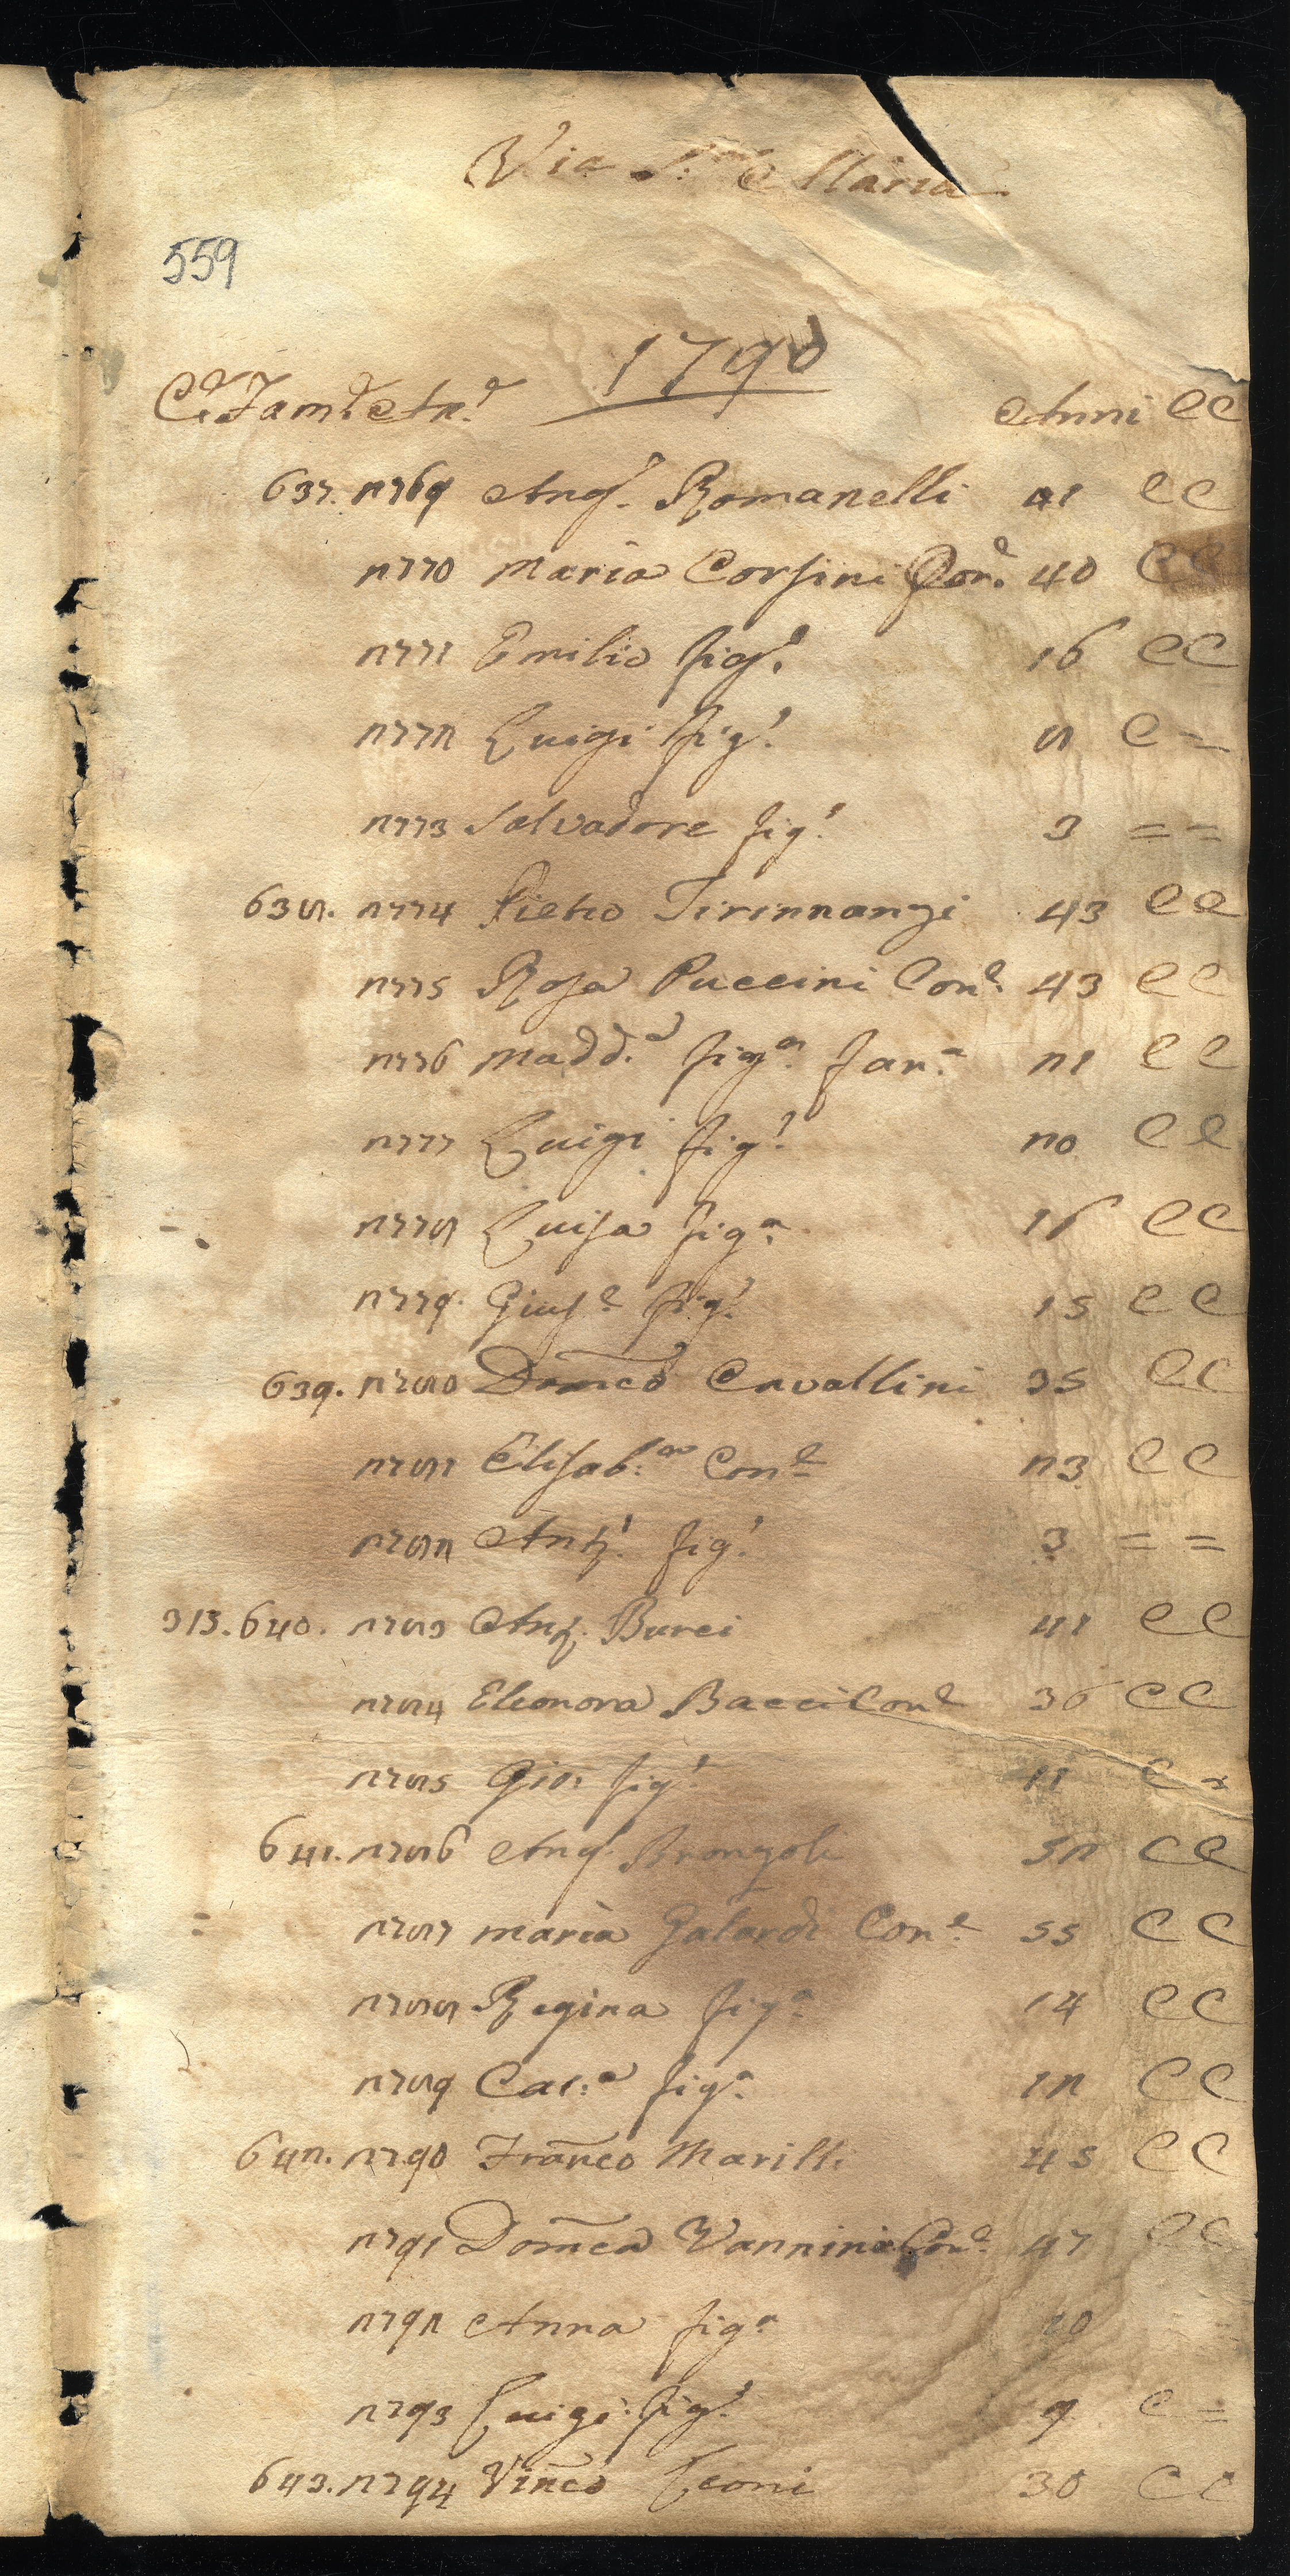 Via S. Maria
559
1790
C.e Fam.e An.e Anni CC
637. 2769 Ang. Romanelli 41 CC
2770 Maria Corsini Con.e 40 CC
2771 Emilio fig.o 16 CC
2772 Luigi fig.o 8 C=
2773 Salvadore fig.o 3 ==
638. 2774 Pietro Tirinnanzi 43 CC
2775 Rosa Puccini Con.e 43 CC
2776 Madd.a fig.a 21 CC
2777 Luigi fig.o 20 CC
2778 Luisa fig.a 16 CC
2779 Gius.e fig.o 15 CC
639. 2780 Dom̃co Cavallini 35 CC
2781 Elisab.a Con.e 23 CC
2782 Ant.o fig.o 3 ==
313. 640. 2783 Burci 41 CC
2784 Eleonora Bacci Con.e 36 CC
2785 Gio: fig.o 11 C=
641. 2786 Ang. Bronzoli 52 CC
= 2787 Maria Galardi Con.e 55 CC
2788 Regina fig.a 14 CC
2789 Cat.a fig.a 12 CC
642. 2790 Frañco Marilli 45 CC
2791 Dom̃ca Vannini Con.e 47 CC
2792 Anna fig.a 10
2793 Luigi fig.o 9 C=
643. 2794 Viñco Leoni 30 CC